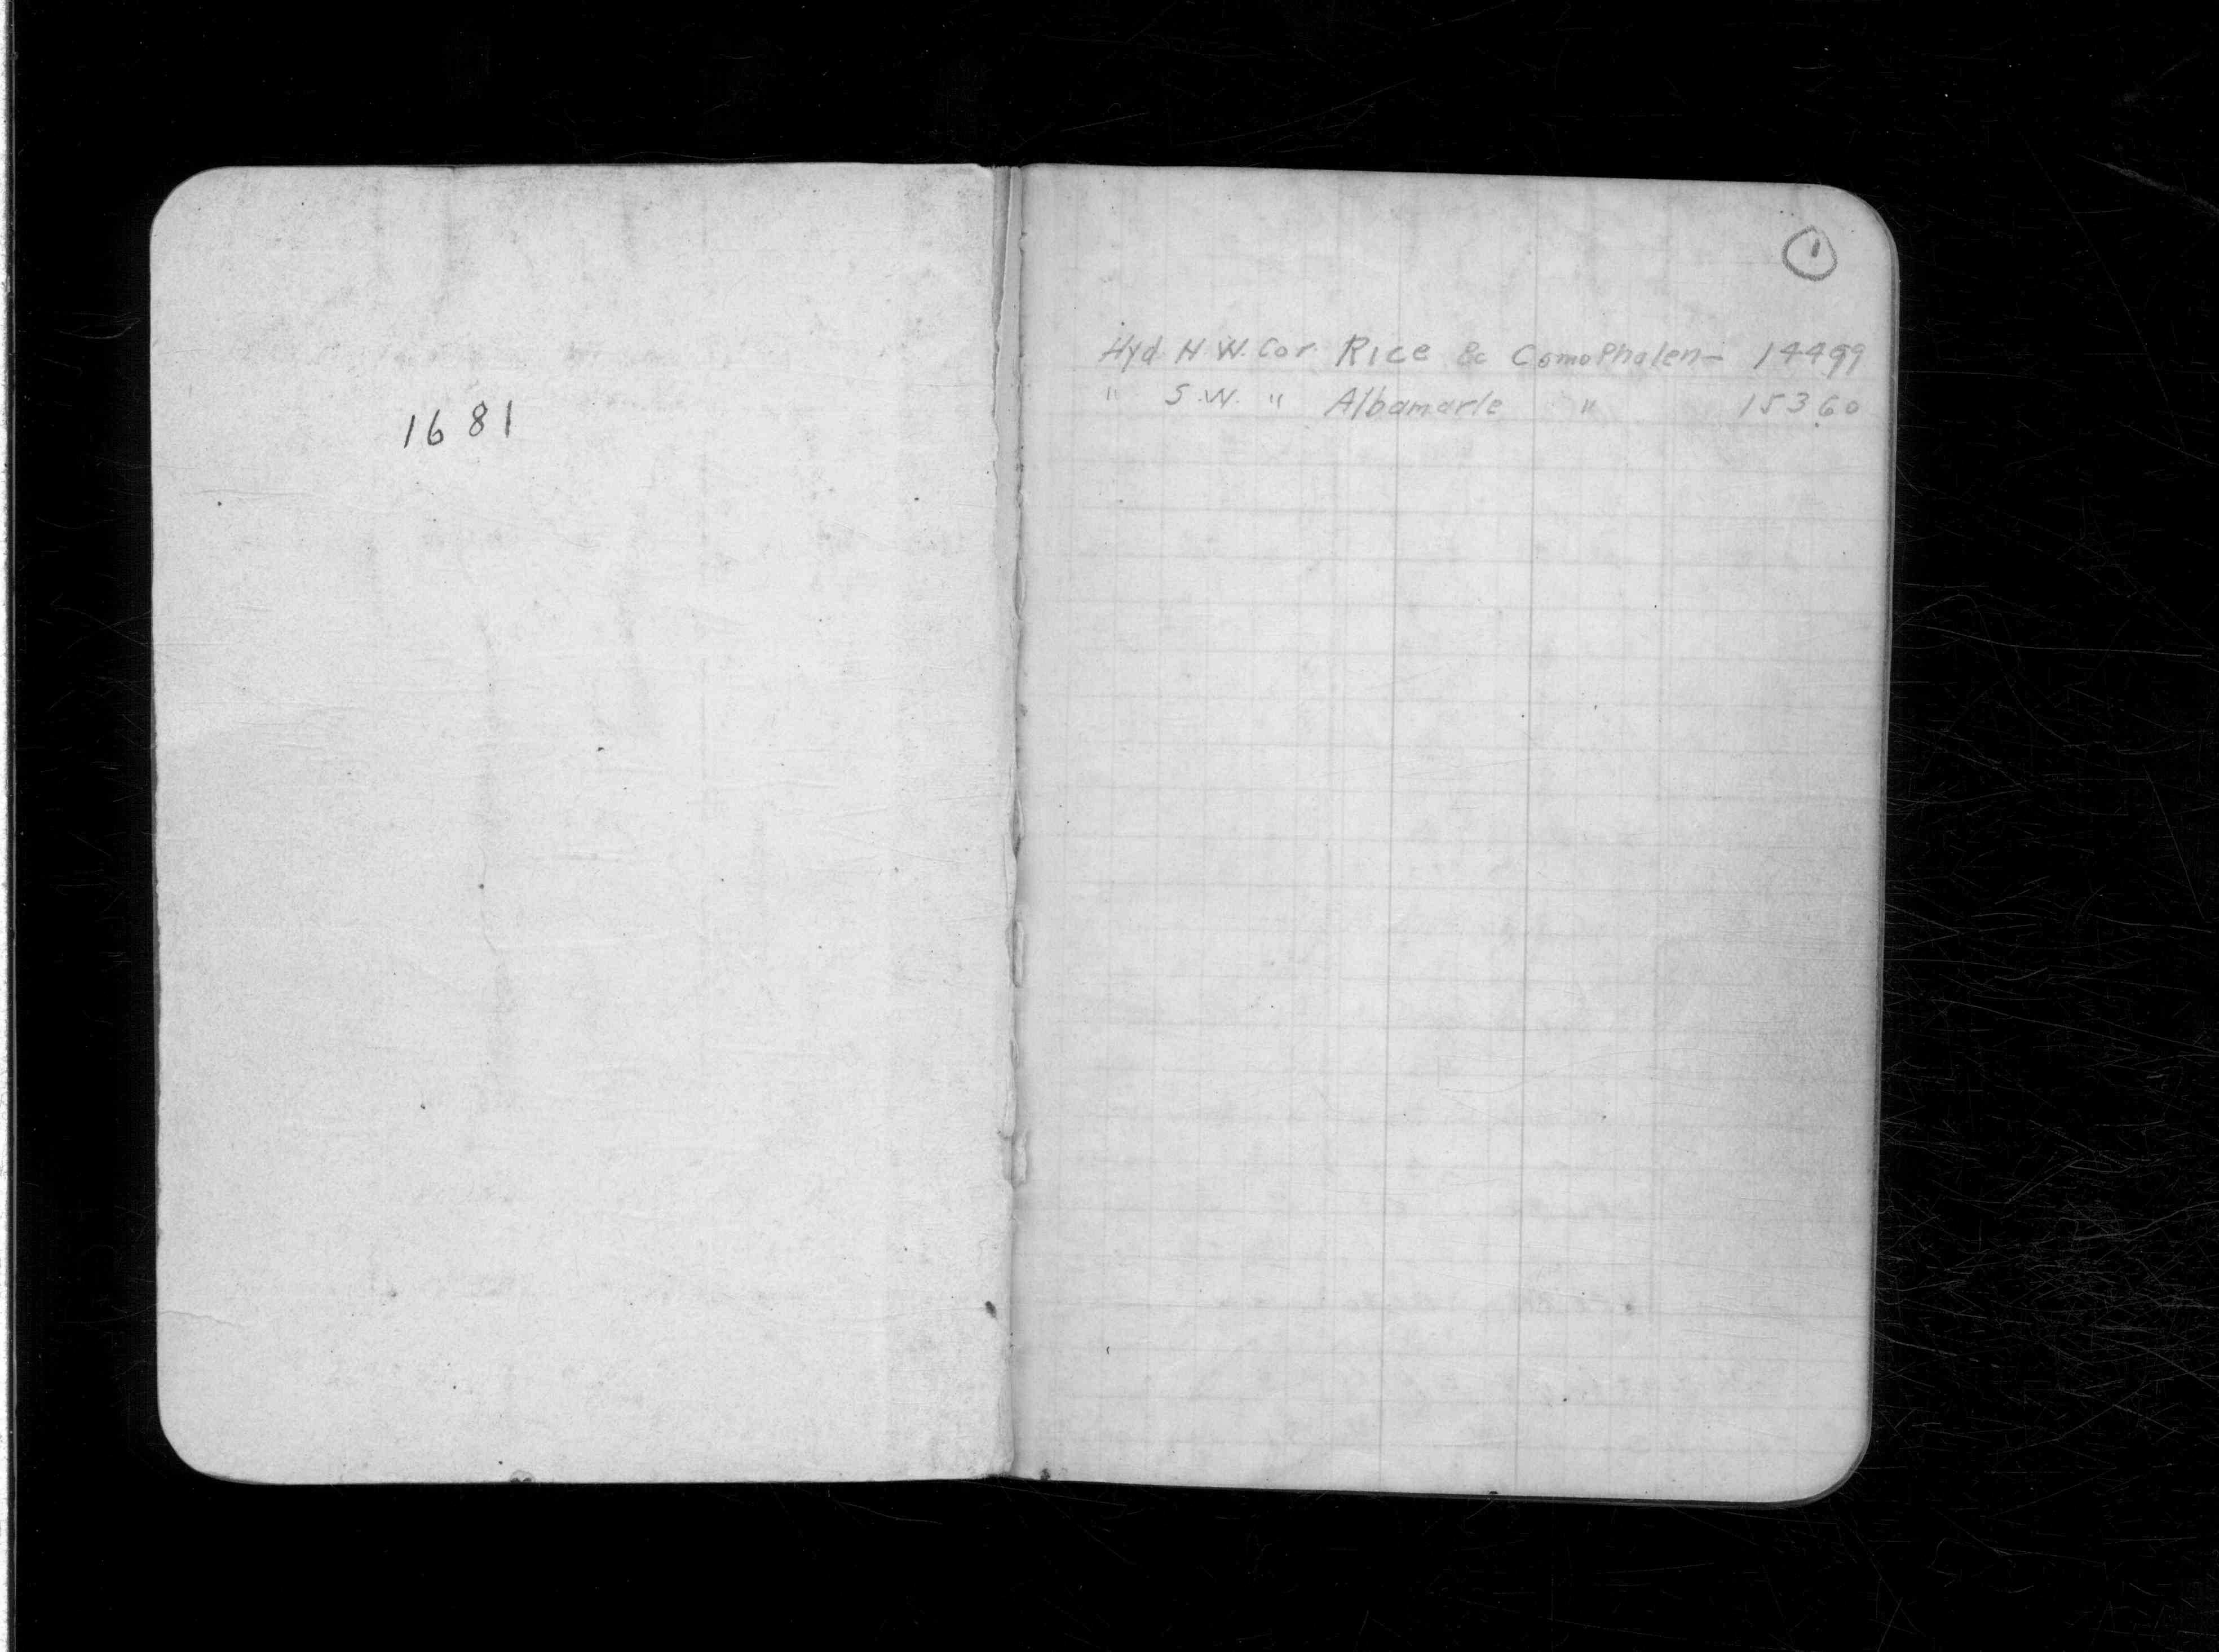 1681
1
Hyd. N.W. Cor. Rice & ComoPhalen- 14499
" S.W. " Albamarle " 15360